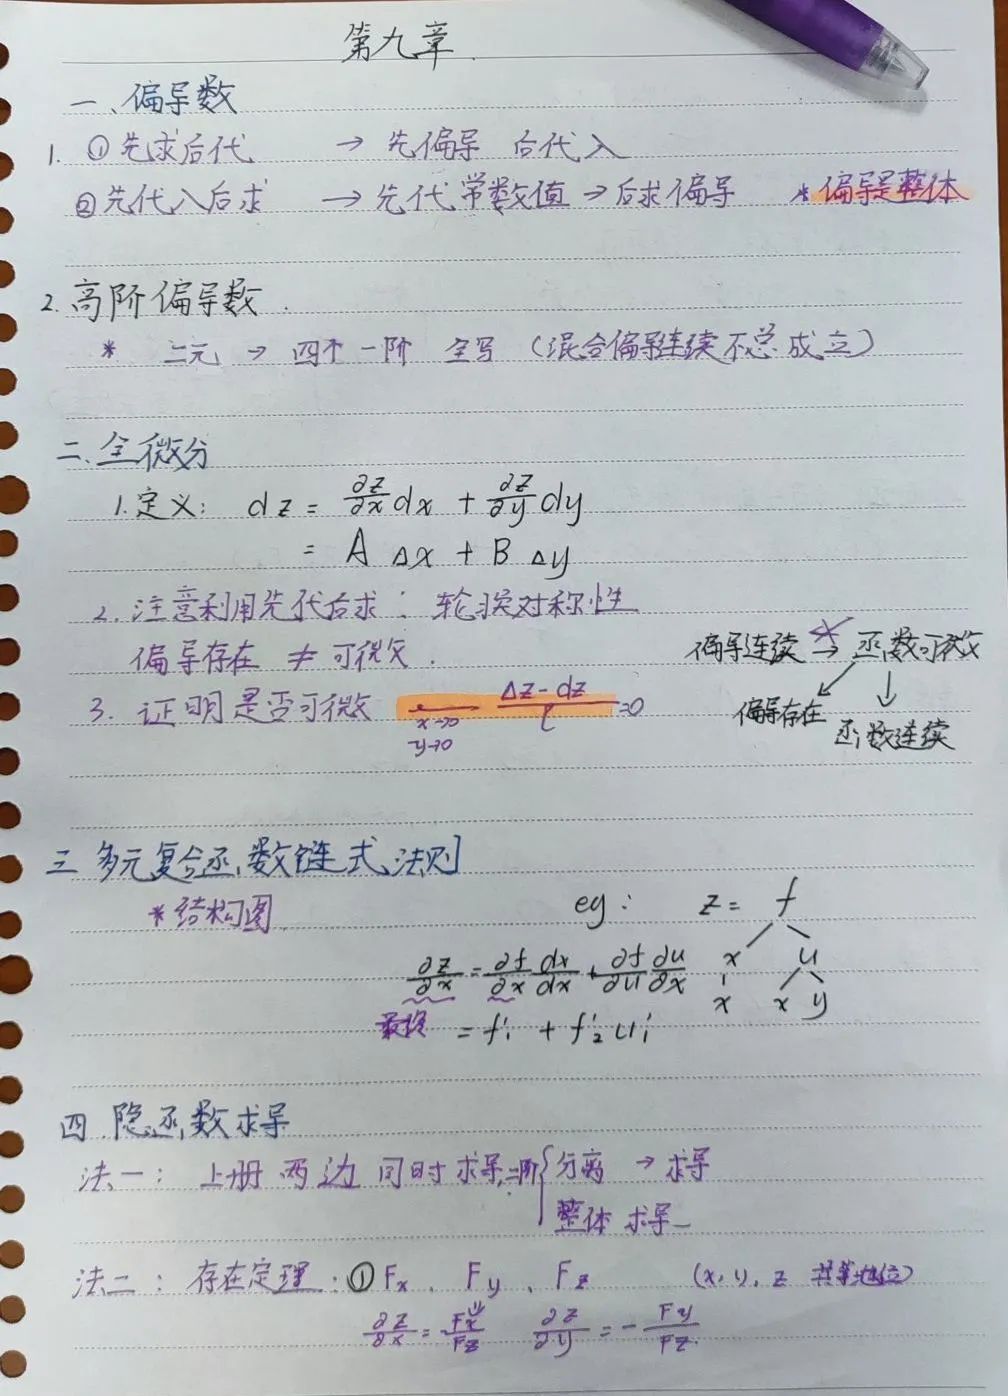 第九章
一、偏导数
1. ①先求后代 → 先偏导 后代入
②先代入后求 → 先代常数值 → 后求偏导 * 偏导是整体
2. 高阶偏导数.
* 二元 → 四个一阶 全写 (混合偏导连续不总成立)
二、全微分
1.定义: dz = ∂z/∂x dx + ∂z/∂y dy
= A Δx + B Δy
2. 注意利用先代后求: 轮换对称性
偏导存在 ≠ 可微.
偏导连续 → 函数可微
3. 证明是否可微 x→0 y→0 Δz-dz/ρ =0
偏导存在
函数连续
三 多元复合函数链式法则
*结构图 eg: z = f
∂z/∂x = ∂f/∂x dx/dx + ∂f/∂u ∂u/∂x x u
x x y
最终 = f'₁ + f'₂ u'₁
四.隐函数求导
法一: 上册 两边 同时求导,二阶 { 分离 → 求导
整体 求导
法二: 存在定理: ① Fx、Fy、Fz (x, y, z 共等地位)
∂z/∂x = Fx/Fz ∂z/∂y = - Fy/Fz.